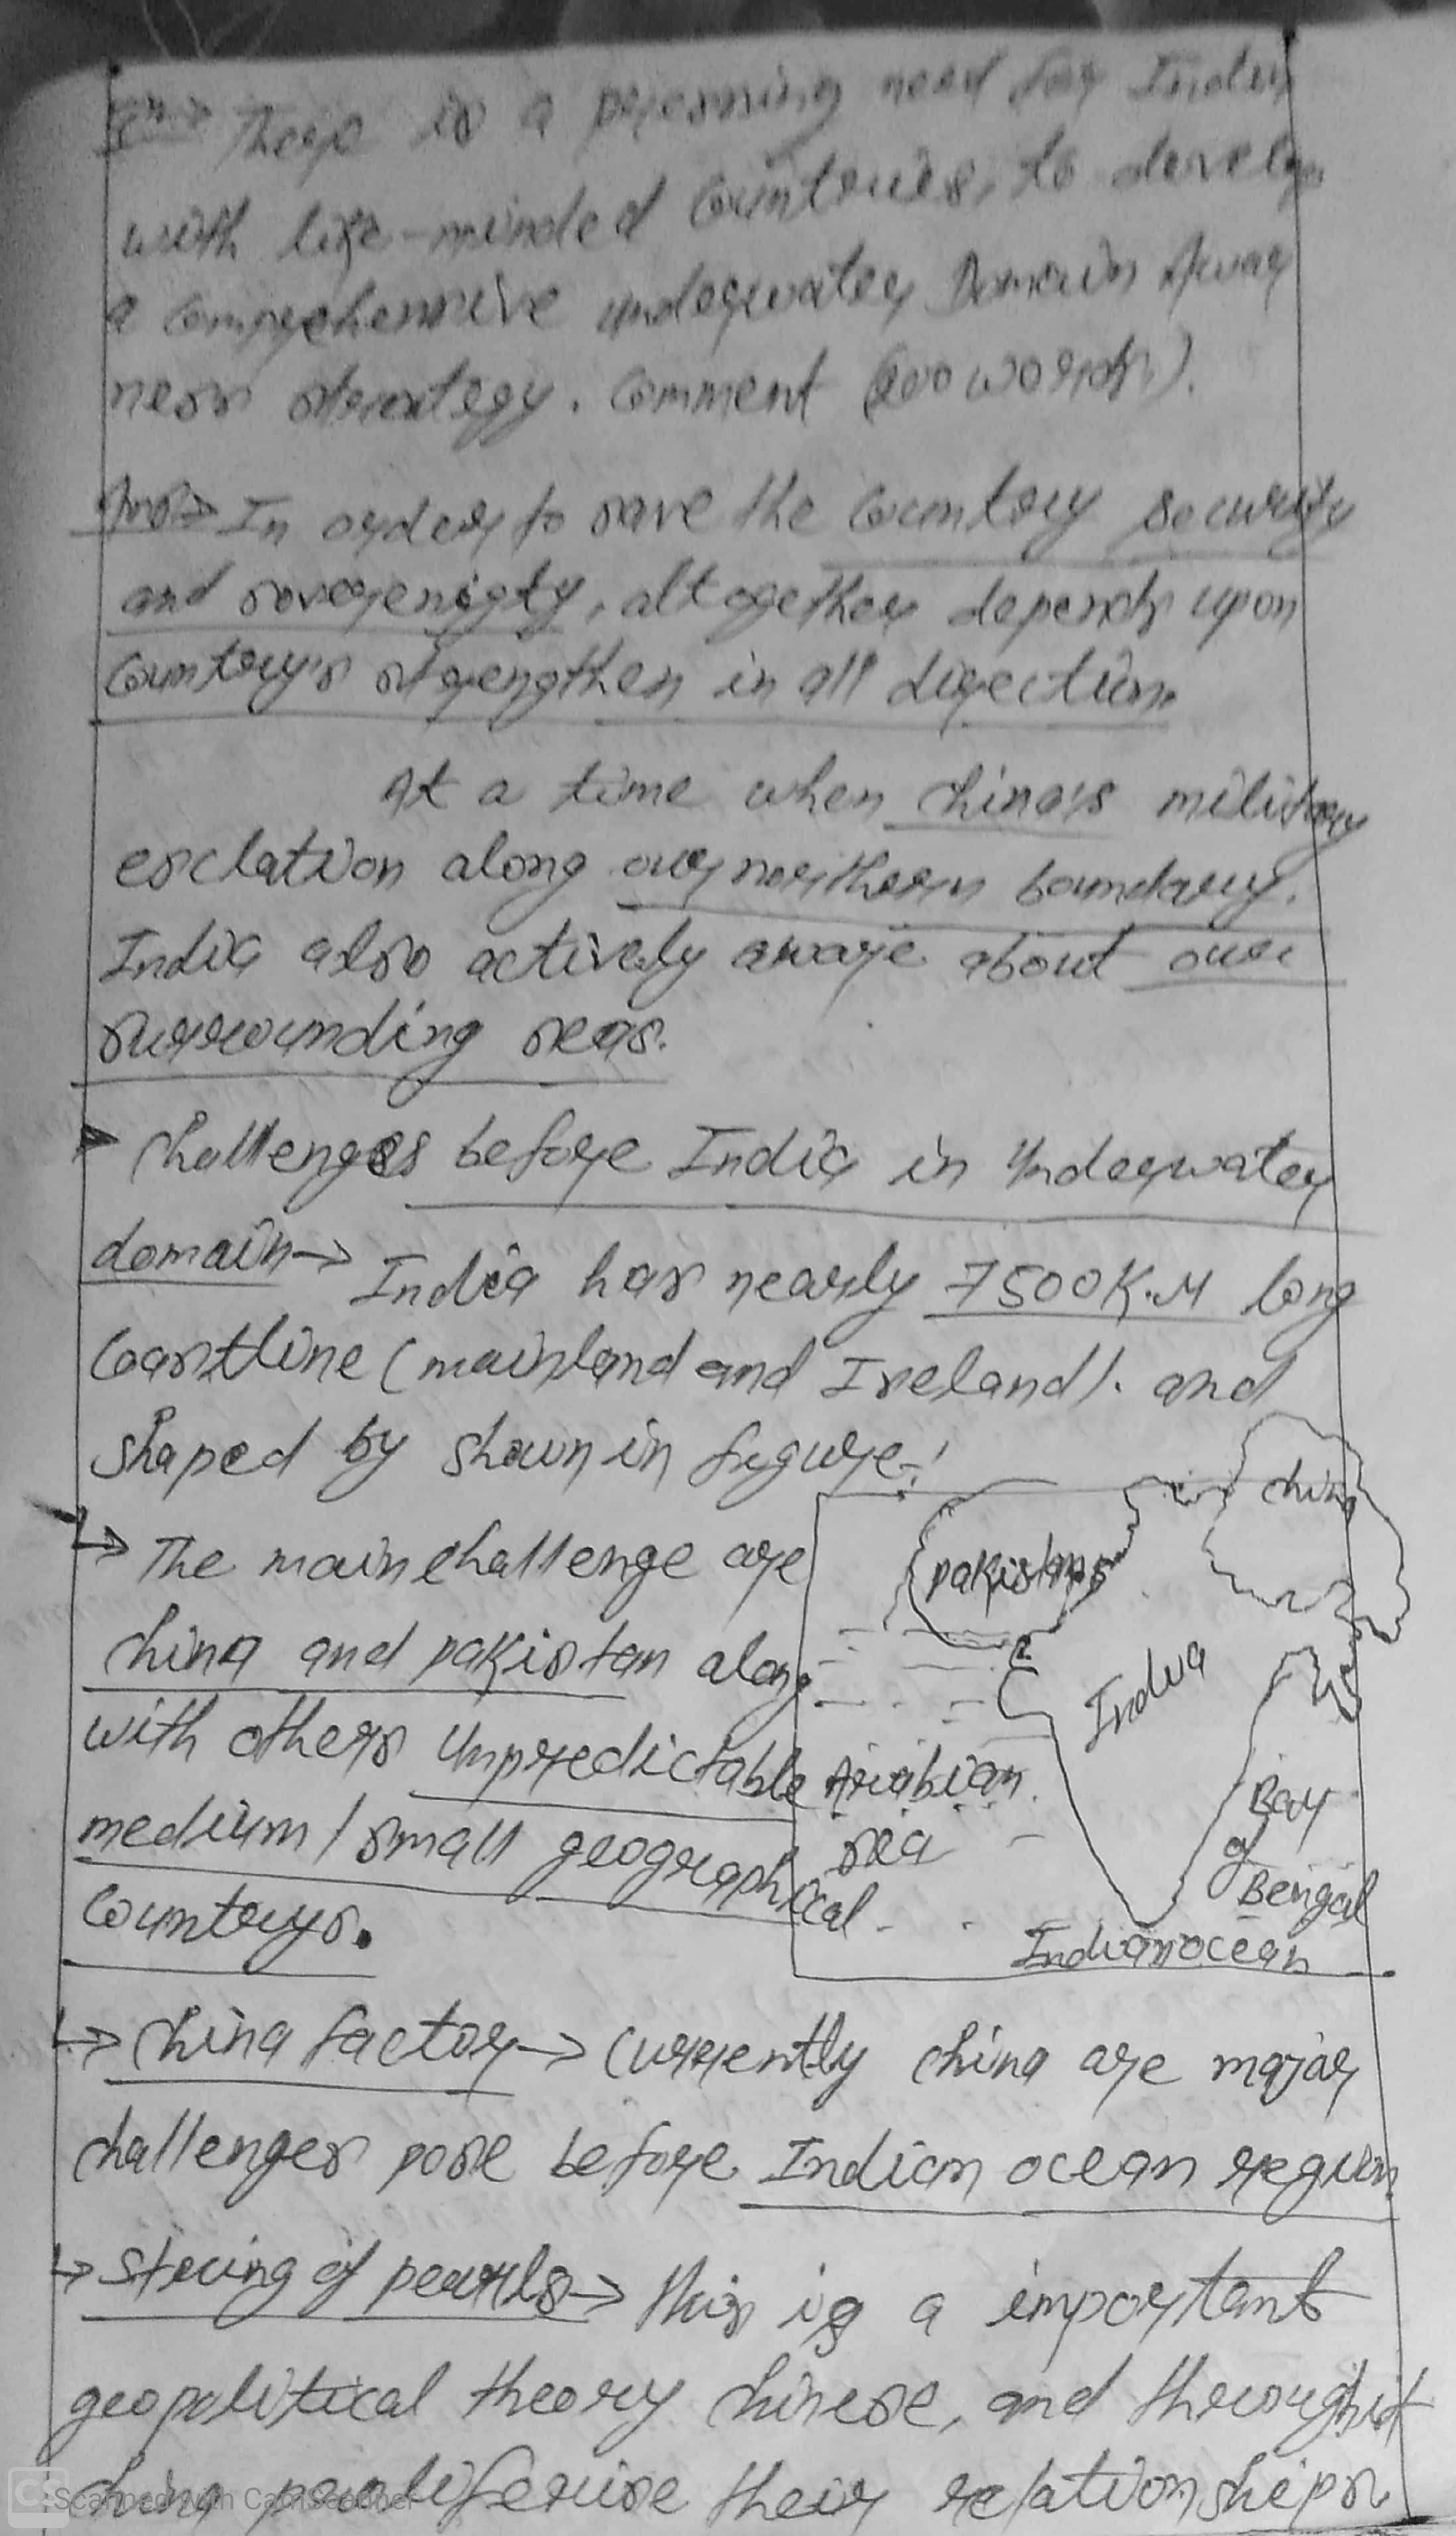 Qn→ There is a pressing need for India
with like-minded Countries, to develop
a comprehensive underwater Domain Awar
ness strategy. Comment (200 words).
Ans→ In order to save the Country security
and sovereignity, altogether depends upon
Country's strengthen in all direction.
At a time when china's military
esclation along our northern boundary.
India also actively aware about our
surrounding seas.
➤ Challenges before India in Underwater
domain→ India has nearly 7500K.M long
Coastline (mainland and Iseland). and
shaped by shown in figure:
↳ The main challenge are
China and pakistan along
with others Unpredictable
medium/small geographical
Countrys.
china
pakistan
India
Arabian
sea
Bay
of
Bengal
Indian ocean
↳ China factor→ Currently china are major
challenges pose before Indian ocean region
↳ String of pearls→ this is a important
geopolitical theory chinese, and through it
china proliferise their relationships
Scanned with CamScanner